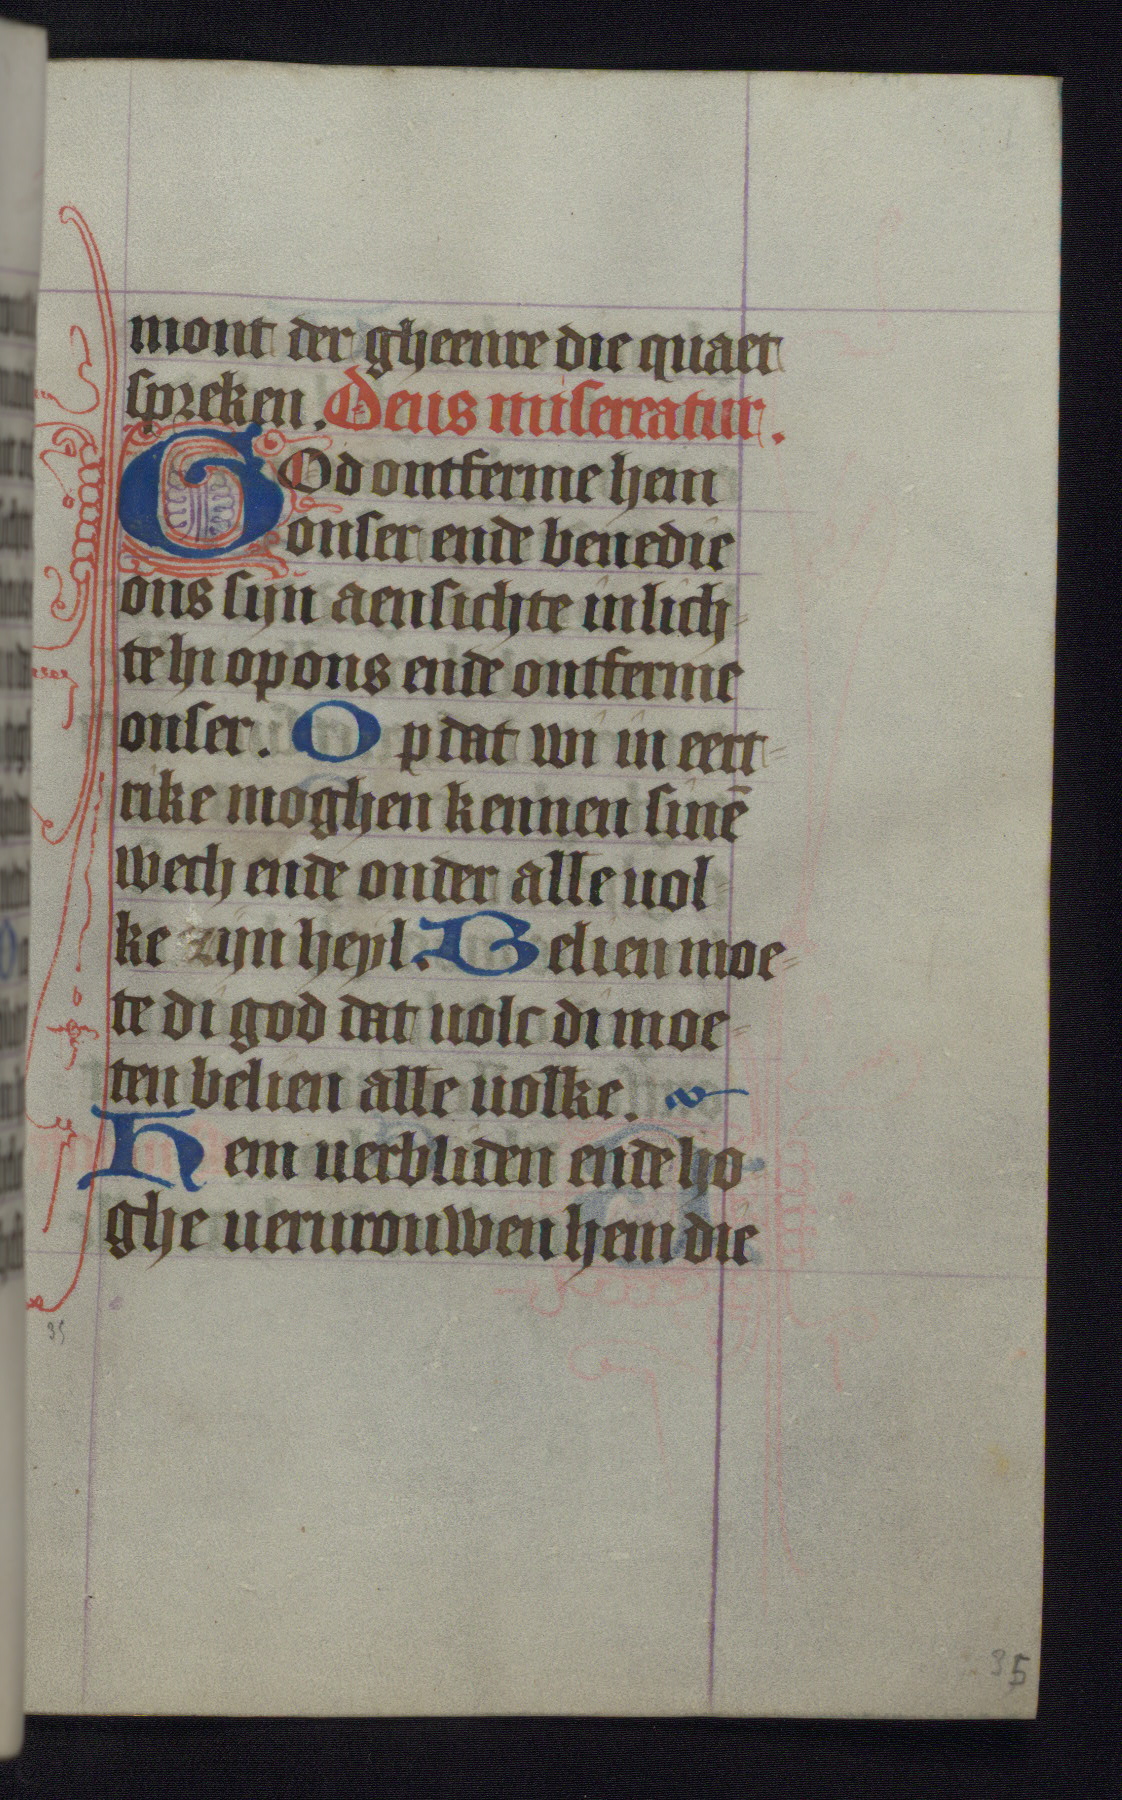 mont der gheenre die quaet
spreken. Deus misereatur.
GOd ontferme hem
onser ende benedie
ons sijn aensichte inlich-
te hi op ons ende ontferme
onser. Op dat wi in eert-
rike moghen kennen sinē
wech ende onder alle uol-
ke zijn heyl. Belien moe-
te di god dat uolc di moe-
ten belien alle uolke.
Hem uerbliden ende ho
ghe uerurouwen hem die
35
35